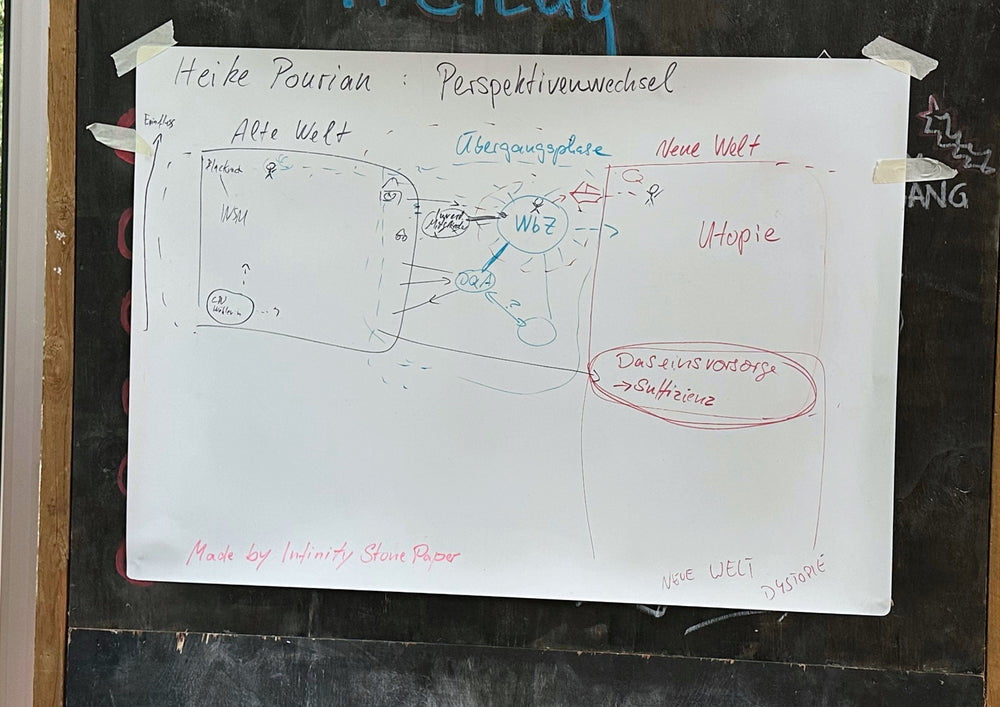 Heike Pourian : Perspektivenwechsel
Einfluss
Alte Welt
Übergangsphase
Neue Welt
Blackrock
WbZ
Utopie
DQA
?
CDU
Wählerin
Daseinsvorsorge
→ Suffizienz
Made by Infinity Stone Paper
NEUE WELT
DYSTOPIE
ANG